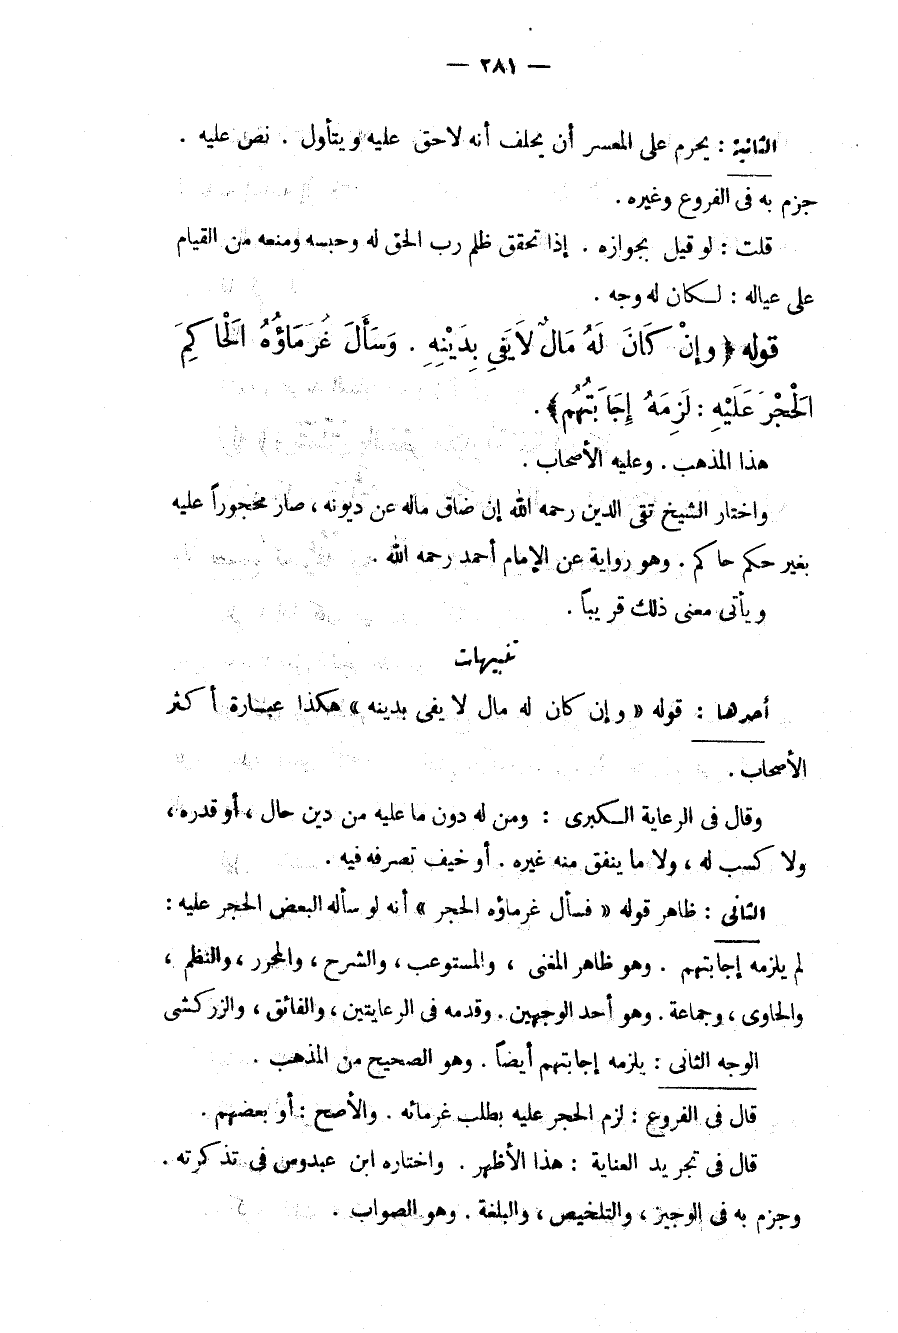 — ٢٨١ —
الثانية : يحرم على المعسر أن يحلف أنه لاحق عليه ويتأول . نص عليه .
جزم به فى الفروع وغيره .
قلت : لو قيل بجوازه . إذا تحقق ظلم رب الحق له وحبسه ومنعه من القيام
على عياله : لكان له وجه .
قوله ﴿ وإِنْ كَانَ لَهُ مَالٌ لاَ يَفِى بِدَيْنِهِ . وَسَأَلَ غُرَمَاؤُهُ الْحَاكِمَ
الْحَجْرَ عَلَيْهِ : لَزِمَهُ إِجَابَتُهُم﴾ .
هذا المذهب . وعليه الأصحاب .
واختار الشيخ تقى الدين رحمه الله إن ضاق ماله عن ديونه ، صار محجوراً عليه
بغير حكم حاكم . وهو رواية عن الإمام أحمد رحمه الله .
ويأتى معنى ذلك قريباً .
تنبيهات
أحدها : قوله « وإن كان له مال لا يفى بدينه » هكذا عبارة أكثر
الأصحاب .
وقال فى الرعاية الكبرى : ومن له دون ما عليه من دين حال ، أو قدره ،
ولا كسب له ، ولا ما ينفق منه غيره . أو خيف تصرفه فيه .
الثانى : ظاهر قوله « فسأل غرماؤه الحجر » أنه لو سأله البعض الحجر عليه :
لم يلزمه إجابتهم . وهو ظاهر المغنى ، والمستوعب ، والشرح ، والمحرر ، والنظم ،
والحاوى ، وجماعة . وهو أحد الوجهين . وقدمه فى الرعايتين ، والفائق ، والزركشى
الوجه الثانى : يلزمه إجابتهم أيضاً . وهو الصحيح من المذهب .
قال فى الفروع : لزم الحجر عليه بطلب غرمائه . والأصح : أو بعضهم .
قال فى تجريد العناية : هذا الأظهر . واختاره ابن عبدوس فى تذكرته .
وجزم به فى الوجيز ، والتلخيص ، والبلغة . وهو الصواب .